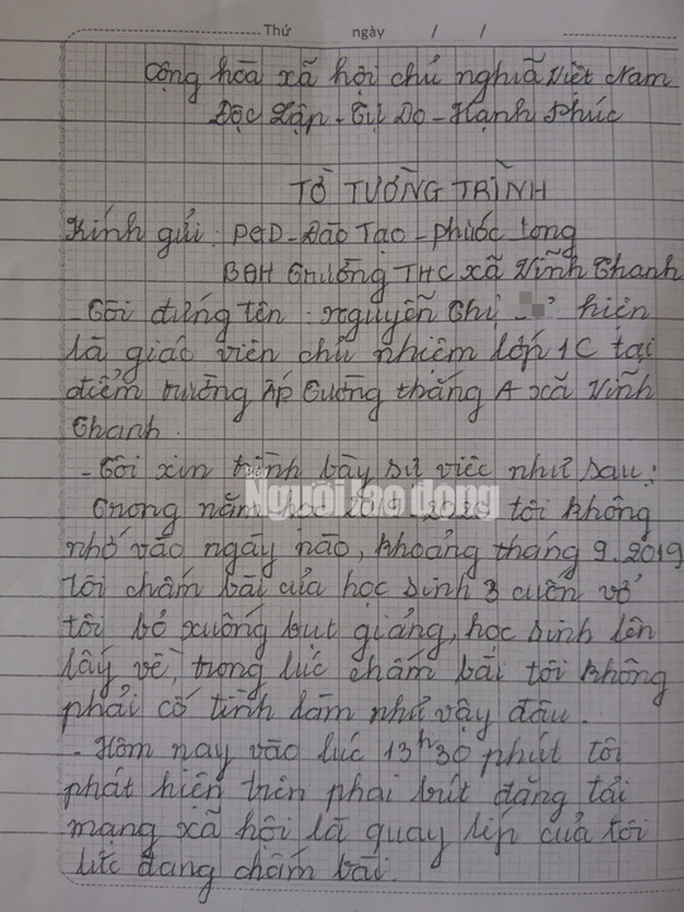 Thứ ngày / /
Cộng hòa xã hội chủ nghĩa Việt Nam
Độc Lập - Tự Do - Hạnh Phúc
TỜ TƯỜNG TRÌNH
Kính gửi: PGD - Đào Tạo - Phước Long
BGH Trường THC xã Vĩnh Thanh
- Tôi đứng tên: Nguyễn Thị hiện
là giáo viên chủ nhiệm lớp 1C tại
điểm trường Ấp Tường thắng A xã Vĩnh
Thanh.
- Tôi xin trình bày sự việc như sau:
Trong năm học 2020 tôi không
nhớ vào ngày nào, khoảng tháng 9.2019
tôi chấm bài của học sinh 3 cuốn vở
tôi bỏ xuống bụt giảng, học sinh lên
lấy về, trong lúc chấm bài tôi không
phải cố tình làm như vậy đâu.
- Hôm nay vào lúc 13h30 phút tôi
phát hiện trên phai bút đăng tải
mạng xã hội là quay líp của tôi
lúc đang chấm bài.
Người lao động